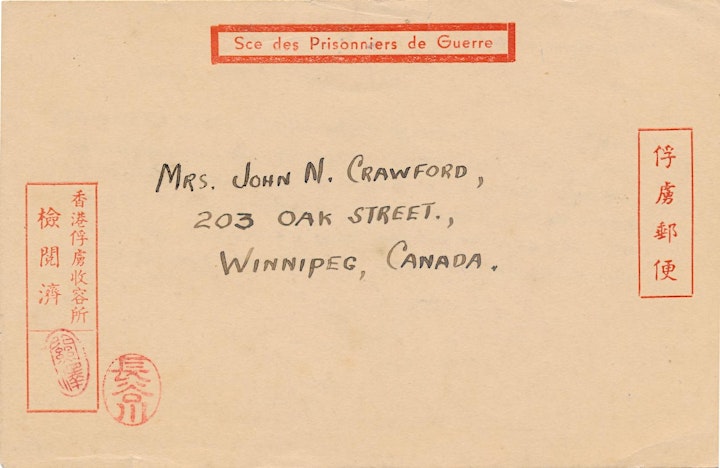 Sce des Prisonniers de Guerre
俘虜郵便
MRS. JOHN N. CRAWFORD,
203 OAK STREET.,
WINNIPEG, CANADA.
香港俘虜收容所
檢閱濟
長谷川